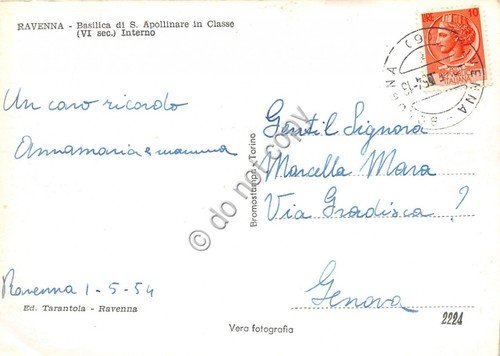 RAVENNA - Basilica di S. Apollinare in Classe
(VI sec.) Interno
LIRE 10
ITALIANE
Un caro ricordo
Annamaria e mamma
Ravenna 1-5-54
Ed. Tarantola - Ravenna
Bromostampa - Torino
Gentil Signora
Marcella Mara
Via Gradisca ?
Genova
2224
Vera fotografia
© do not copy